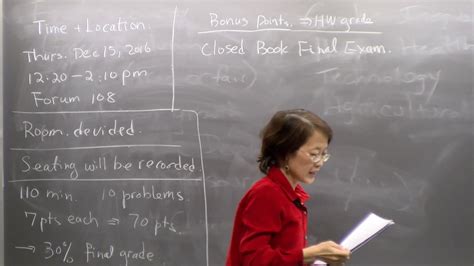 Time + Location
Thurs. Dec 15, 2016
12:20-2:10pm
Forum 108
Room. devided.
Seating will be recorded
110 min. 10 problems
7pts each ⇒ 70 pts
→ 30% final grade
Bonus Points. ⇒ HW grade
Closed Book Final Exam.
Technology
Agricultural